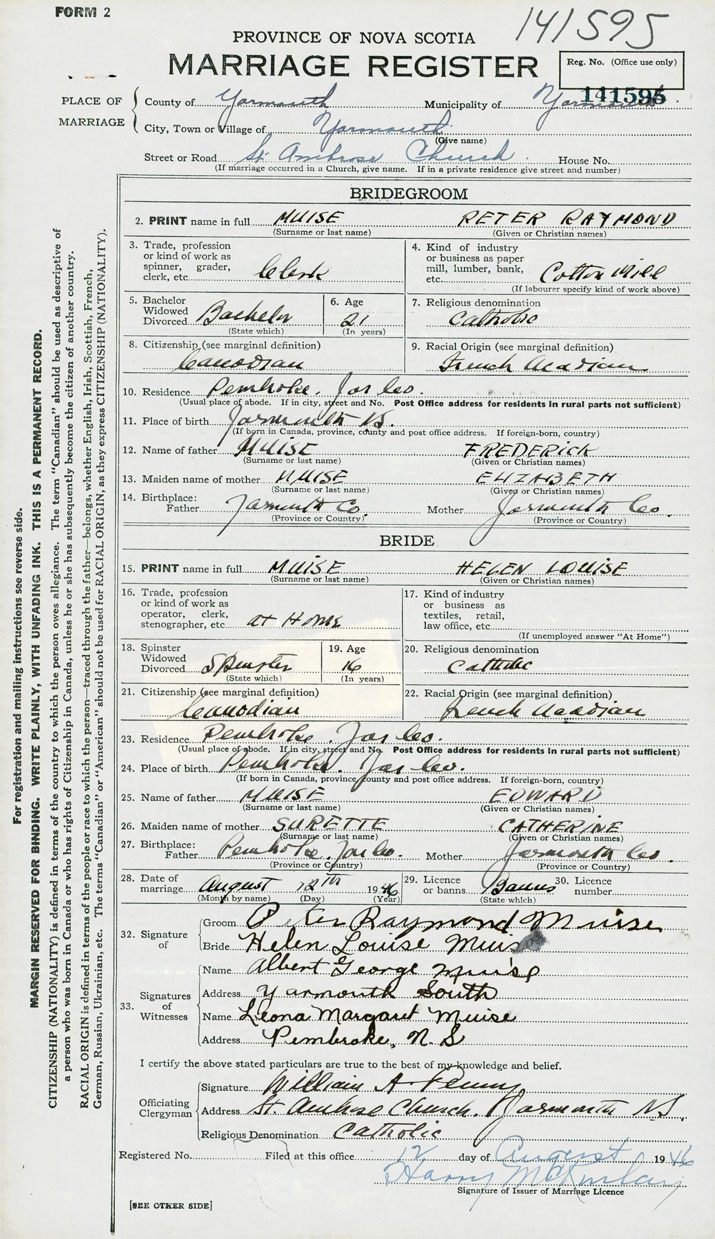 FORM 2
141595
PROVINCE OF NOVA SCOTIA
MARRIAGE REGISTER
Reg. No. (Office use only)
141595
PLACE OF MARRIAGE
County of Yarmouth Municipality of Yarmouth
City, Town or Village of Yarmouth
(Give name)
Street or Road St. Ambrose Church House No.
(If marriage occurred in a Church, give name. If in a private residence give street and number)
BRIDEGROOM
2. PRINT name in full MUISE PETER RAYMOND
(Surname or last name) (Given or Christian names)
3. Trade, profession or kind of work as spinner, grader, clerk, etc. Clerk
4. Kind of industry or business as paper mill, lumber, bank, etc. Cotton Mill
(If labourer specify kind of work above)
5. Bachelor Widowed Divorced Bachelor
(State which)
6. Age 21
(In years)
7. Religious denomination Catholic
8. Citizenship (see marginal definition) Canadian
9. Racial Origin (see marginal definition) French Acadian
10. Residence Pembroke, Yar Co.
(Usual place of abode. If in city, street and No. Post Office address for residents in rural parts not sufficient)
11. Place of birth Yarmouth
(If born in Canada, province, county and post office address. If foreign-born, country)
12. Name of father MUISE FREDERICK
(Surname or last name) (Given or Christian names)
13. Maiden name of mother MUISE ELIZABETH
(Surname or last name) (Given or Christian names)
14. Birthplace: Father Yarmouth Co. Mother Yarmouth Co.
(Province or Country) (Province or Country)
BRIDE
15. PRINT name in full MUISE HELEN LOUISE
(Surname or last name) (Given or Christian names)
16. Trade, profession or kind of work as operator, clerk, stenographer, etc. at Home
17. Kind of industry or business as textiles, retail, law office, etc.
(If unemployed answer "At Home")
18. Spinster Widowed Divorced Spinster
(State which)
19. Age 16
(In years)
20. Religious denomination Catholic
21. Citizenship (see marginal definition) Canadian
22. Racial Origin (see marginal definition) French Acadian
23. Residence Pembroke, Yar Co.
(Usual place of abode. If in city, street and No. Post Office address for residents in rural parts not sufficient)
24. Place of birth Pembroke, Yar Co.
(If born in Canada, province, county and post office address. If foreign-born, country)
25. Name of father MUISE EDWARD
(Surname or last name) (Given or Christian names)
26. Maiden name of mother SURETTE CATHERINE
(Surname or last name) (Given or Christian names)
27. Birthplace: Father Pembroke, Yar Co. Mother Yarmouth Co.
(Province or Country) (Province or Country)
28. Date of marriage August 12th 1946
(Month by name) (Day) (Year)
29. Licence or banns Banns
(State which)
30. Licence number
32. Signature of
Groom Peter Raymond Muise
Bride Helen Louise Muise
33. Signatures of Witnesses
Name Albert George Muise
Address Yarmouth South
Name Leona Margaret Muise
Address Pembroke, N.S
I certify the above stated particulars are true to the best of my knowledge and belief.
Officiating Clergyman
Signature William A Penny
Address St. Ambrose Church. Yarmouth NS
Religious Denomination Catholic
Registered No. Filed at this office 12 day of August 1946
Harry McKinlay
Signature of Issuer of Marriage Licence
[SEE OTHER SIDE]
For registration and mailing instructions see reverse side.
MARGIN RESERVED FOR BINDING. WRITE PLAINLY, WITH UNFADING INK. THIS IS A PERMANENT RECORD.
CITIZENSHIP (NATIONALITY) is defined in terms of the country to which the person owes allegiance. The term "Canadian" should be used as descriptive of
a person who was born in Canada or who has rights of Citizenship in Canada, unless he or she has subsequently become the citizen of another country.
RACIAL ORIGIN is defined in terms of the people or race to which the person—traced through the father—belongs, whether English, Irish, Scottish, French,
German, Russian, Ukrainian, etc. The terms "Canadian" or "American" should not be used for RACIAL ORIGIN, as they express CITIZENSHIP (NATIONALITY).